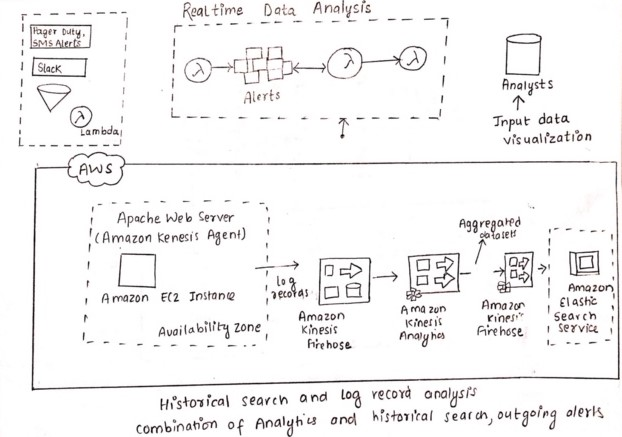 Realtime Data Analysis
Pager Duty,
SMS Alerts
Slack
λ
Lambda
λ
λ
λ
Alerts
Analysts
Input data
visualization
AWS
Apache Web Server
(Amazon Kenesis Agent)
Amazon EC2 Instance
Availability zone
log
records
Amazon
Kinesis
Firehose
Amazon
Kinesis
Analytics
Aggregated
datasets
Amazon
Kinesis
Firehose
Amazon
Elastic
Search
Service
Historical search and log record analysis
combination of Analytics and historical search, outgoing alerts